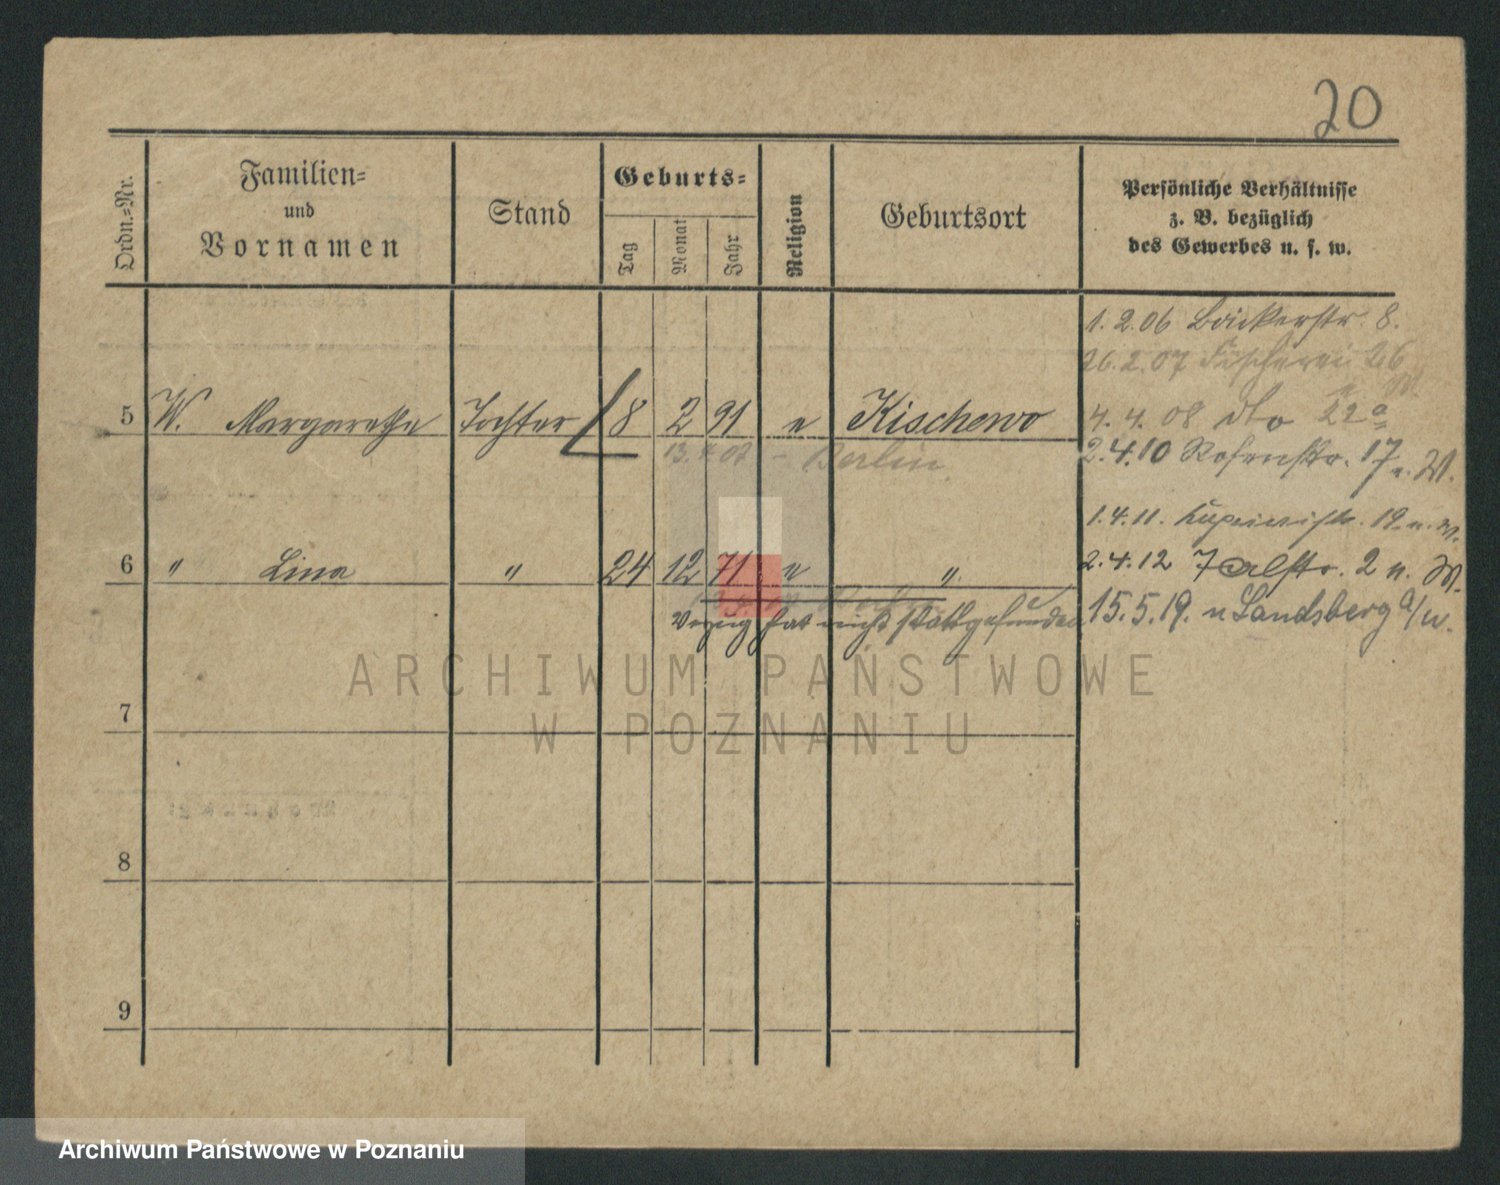 20
Ordn.-Nr.
Familien-
und
Vornamen
Stand
Geburts-
Tag
Monat
Jahr
Religion
Geburtsort
Persönliche Verhältnisse
z. B. bezüglich
des Gewerbes u. s. w.
1. 2. 06 Bäckerstr. 8.
26. 2. 07 Fischerei 26
4. 4. 08 dto 22a
5 W. Margarethe Tochter 8 2 91 e Kischewo
13. 4. 07 - Berlin
2. 4. 10 Rosenstr. 17 n. W.
1. 4. 11. 19 n. W.
6 " Lina " 24 12 71 e "
2. 4. 12 Talstr. 2 n. W.
Verzug hat nicht stattgefunden
15. 5. 19. n Landsberg a/W.
7
8
9
ARCHIWUM PAŃSTWOWE
W POZNANIU
Archiwum Państwowe w Poznaniu